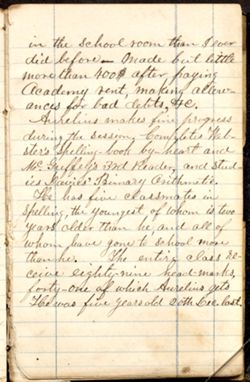 in the school room than I ever
did before — Made but little
more than 400$ after paying
Academy rent, making allow-
ances for bad debts, &c.
Aurelius makes fine progress
during the session. Completes Web-
ster's Spelling-book by heart and
Mc Guffey's 3rd Reader, and stud-
ies Primary Arithmetic.
He has five classmates in
spelling, the youngest of whom is two
years older than he, and all of
whom have gone to school more
than he. The entire class re-
ceive eighty-nine head-marks,
forty-one of which Aurelius gets
He was five years old 20th Dec. last.